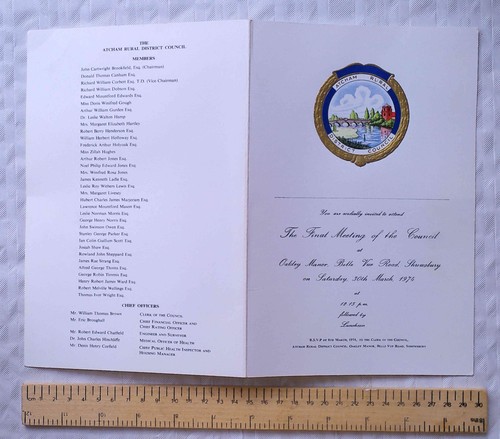 THE
ATCHAM RURAL DISTRICT COUNCIL
MEMBERS
John Cartwright Brookfield, Esq. (Chairman)
Donald Thomas Esq.
Richard William Corbett Esq. T.D. (Vice Chairman)
Richard William Esq.
Edward Edwards Esq.
Miss Dora Winifred Gough
Arthur William Gurden Esq.
Dr. Leslie Walton Hamar
Mrs. Margaret Elizabeth Hartley
Robert Henderson Esq.
William Herbert Holloway Esq.
Frederick Arthur Esq.
Miss Zillah Hughes
Arthur Robert Jones Esq.
Noel Philip Edward Jones Esq.
Mrs. Winifred Rose Jones
James Kenneth Esq.
Leslie Roy Wallace Lewis Esq.
Mrs. Margaret
Hubert Charles James Esq.
Lawrence Moore Esq.
Leslie Norman Morris Esq.
George Henry Norris Esq.
John Swinson Owen Esq.
Stanley George Parker Esq.
Ian Colin Scott Esq.
Josiah Shaw Esq.
Rowland John Sheppard Esq.
James Rae Strang Esq.
Alfred George Thorne Esq.
George Robin Esq.
Henry Robert James Ward Esq.
Robert Melville Esq.
Thomas Ivor Wright Esq.
CHIEF OFFICERS
Mr. William Thomas Brown CLERK OF THE COUNCIL
Mr. Eric CHIEF FINANCIAL OFFICER AND
CHIEF RATING OFFICER
Mr. Robert Edward Chatfield ENGINEER AND SURVEYOR
Dr. John Charles Hinchliffe MEDICAL OFFICER OF HEALTH
Mr. Denis Henry Corfield CHIEF PUBLIC HEALTH INSPECTOR AND
HOUSING MANAGER
ATCHAM RURAL
DISTRICT COUNCIL
You are cordially invited to attend
The Final Meeting of the Council
at
Oakley Manor, Belle Vue Road, Shrewsbury
on Saturday, 30th March, 1974
at
12.15 p.m.
followed by
Luncheon
R.S.V.P. by MARCH, 1974, TO THE CLERK OF THE COUNCIL,
ATCHAM RURAL DISTRICT COUNCIL, OAKLEY MANOR, BELLE VUE ROAD, SHREWSBURY.